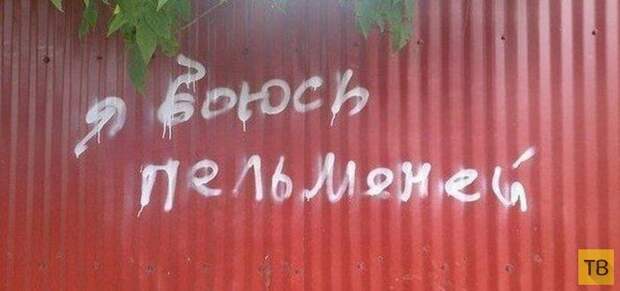 я боюсь
пельменей
ТВ